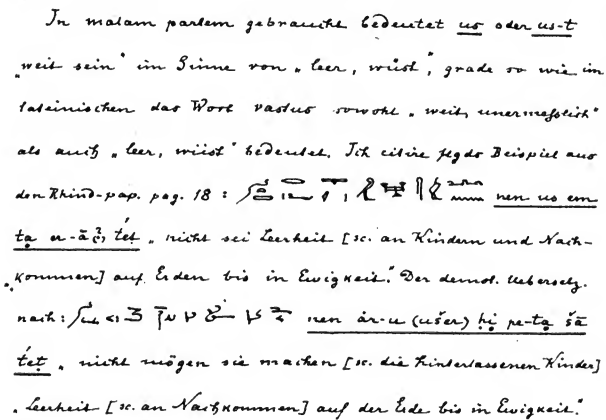 In malam partem gebraucht bedeutet us oder us-t
„weit sein" im Sinne von „leer, wüst", grade so wie im
lateinischen das Wort vastus sowohl „weit, unermesslich"
als auch „leer, wüst" bedeutet. Ich citire flgds Beispiel aus
den Rhind-pap. pag. 18 : nen us em
ta er-āa tet „nicht sei Leerheit [sc. an Kindern und Nach-
„kommen] auf Erden bis in Ewigkeit." Der demot. Uebersetz.
nach : nen ár-u (ušer) ḥi pe-ta šā
tet „nicht mögen sie machen [sc. die hinterlassenen Kinder]
„Leerheit [sc. an Nachkommen] auf der Erde bis in Ewigkeit."